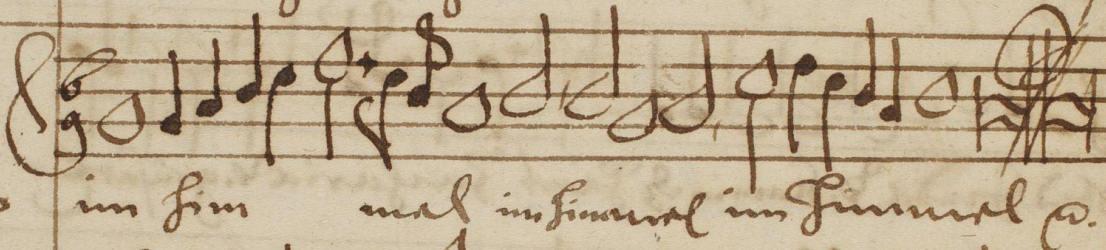 im him mel im himmel im himmel